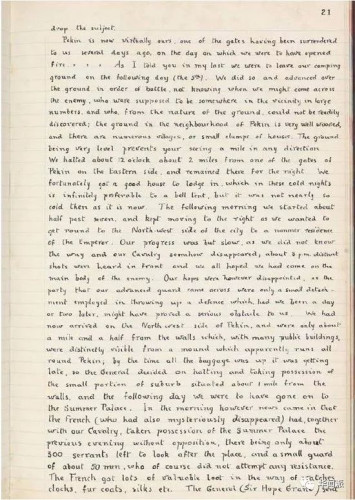 21
drop the subject.
Pekin is now virtually ours, one of the gates having been surrendered
to us several days ago, on the day on which we were to have opened
fire . . . . As I told you in my last we were to leave our camping
ground on the following day (the 5th). We did so and advanced over
the ground in order of battle, not knowing when we might come across
the enemy, who were supposed to be somewhere in the vicinity in large
numbers, and who, from the nature of the ground, could not be readily
discovered; the ground in the neighbourhood of Pekin is very well wooded,
and there are numerous villages, or small clumps of houses. The ground
being very level prevents your seeing a mile in any direction.
We halted about 12 o'clock about 2 miles from one of the gates of
Pekin on the Eastern side, and remained there for the night. We
fortunately got a good house to lodge in, which in these cold nights
is infinitely preferable to a bell tent, but it was not nearly so
cold then as it is now. The following morning we started about
half past seven, and kept moving to the right as we wanted to
get round to the North-west side of the city to a summer residence
of the Emperor. Our progress was but slow, as we did not know
the way and our Cavalry somehow disappeared; about 3 p.m. distinct
shots were heard in front and we all hoped we had come on the
main body of the enemy. Our hopes were however disappointed, as the
party that our advanced guard came across were only a small detach-
ment employed in throwing up a defence which, had we been a day
or two later, might have proved a serious obstacle to us. We had
now arrived on the North west side of Pekin, and were only about
a mile and a half from the walls which, with many public buildings,
were distinctly visible from a mound which apparently runs all
round Pekin; by the time all the baggage was up it was getting
late, so the General decided on halting and taking possession of
the small portion of suburb situated about 1 mile from the
walls, and the following day we were to have gone on to
the Summer Palace. In the morning however news came in that
the French (who had also mysteriously disappeared) had, together
with our Cavalry, taken possession of the Summer Palace the
previous evening without opposition, there being only about
500 servants left to look after the place, and a small guard
of about 50 men, who of course did not attempt any resistance.
The French got lots of valuable loot in the way of watches,
clocks, fur coats, silks etc. The General (Sir Hope Grant) sent